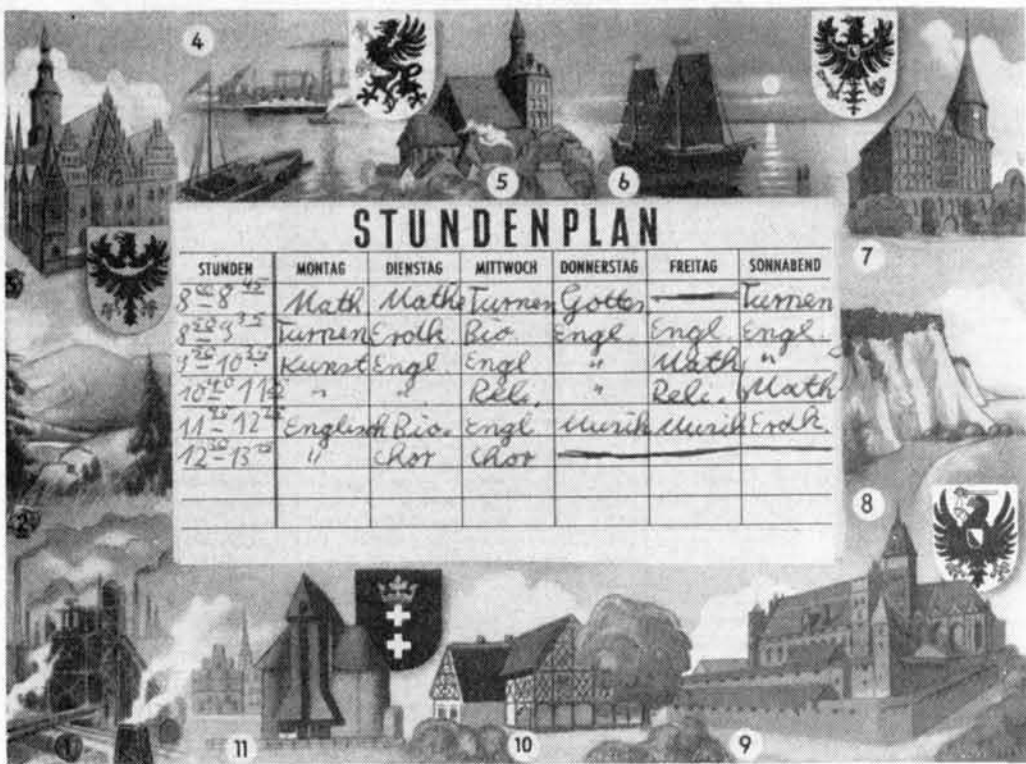 4
5
6
7
STUNDENPLAN
STUNDEN MONTAG DIENSTAG MITTWOCH DONNERSTAG FREITAG SONNABEND
8 00 – 8 45 Math Mathe Turnen Gottes Turnen
8 50 – 9 35 Turnen Erdk Bio Engl. Engl. Engl.
Kunst Engl. Engl " Math "
10 40 " " Reli. " Reli. Math
11 – 12 Englisch Bio. Engl. Musik Musik Erdk.
12 – 13 " Chor Chor
8
3
2
1
11
10
9